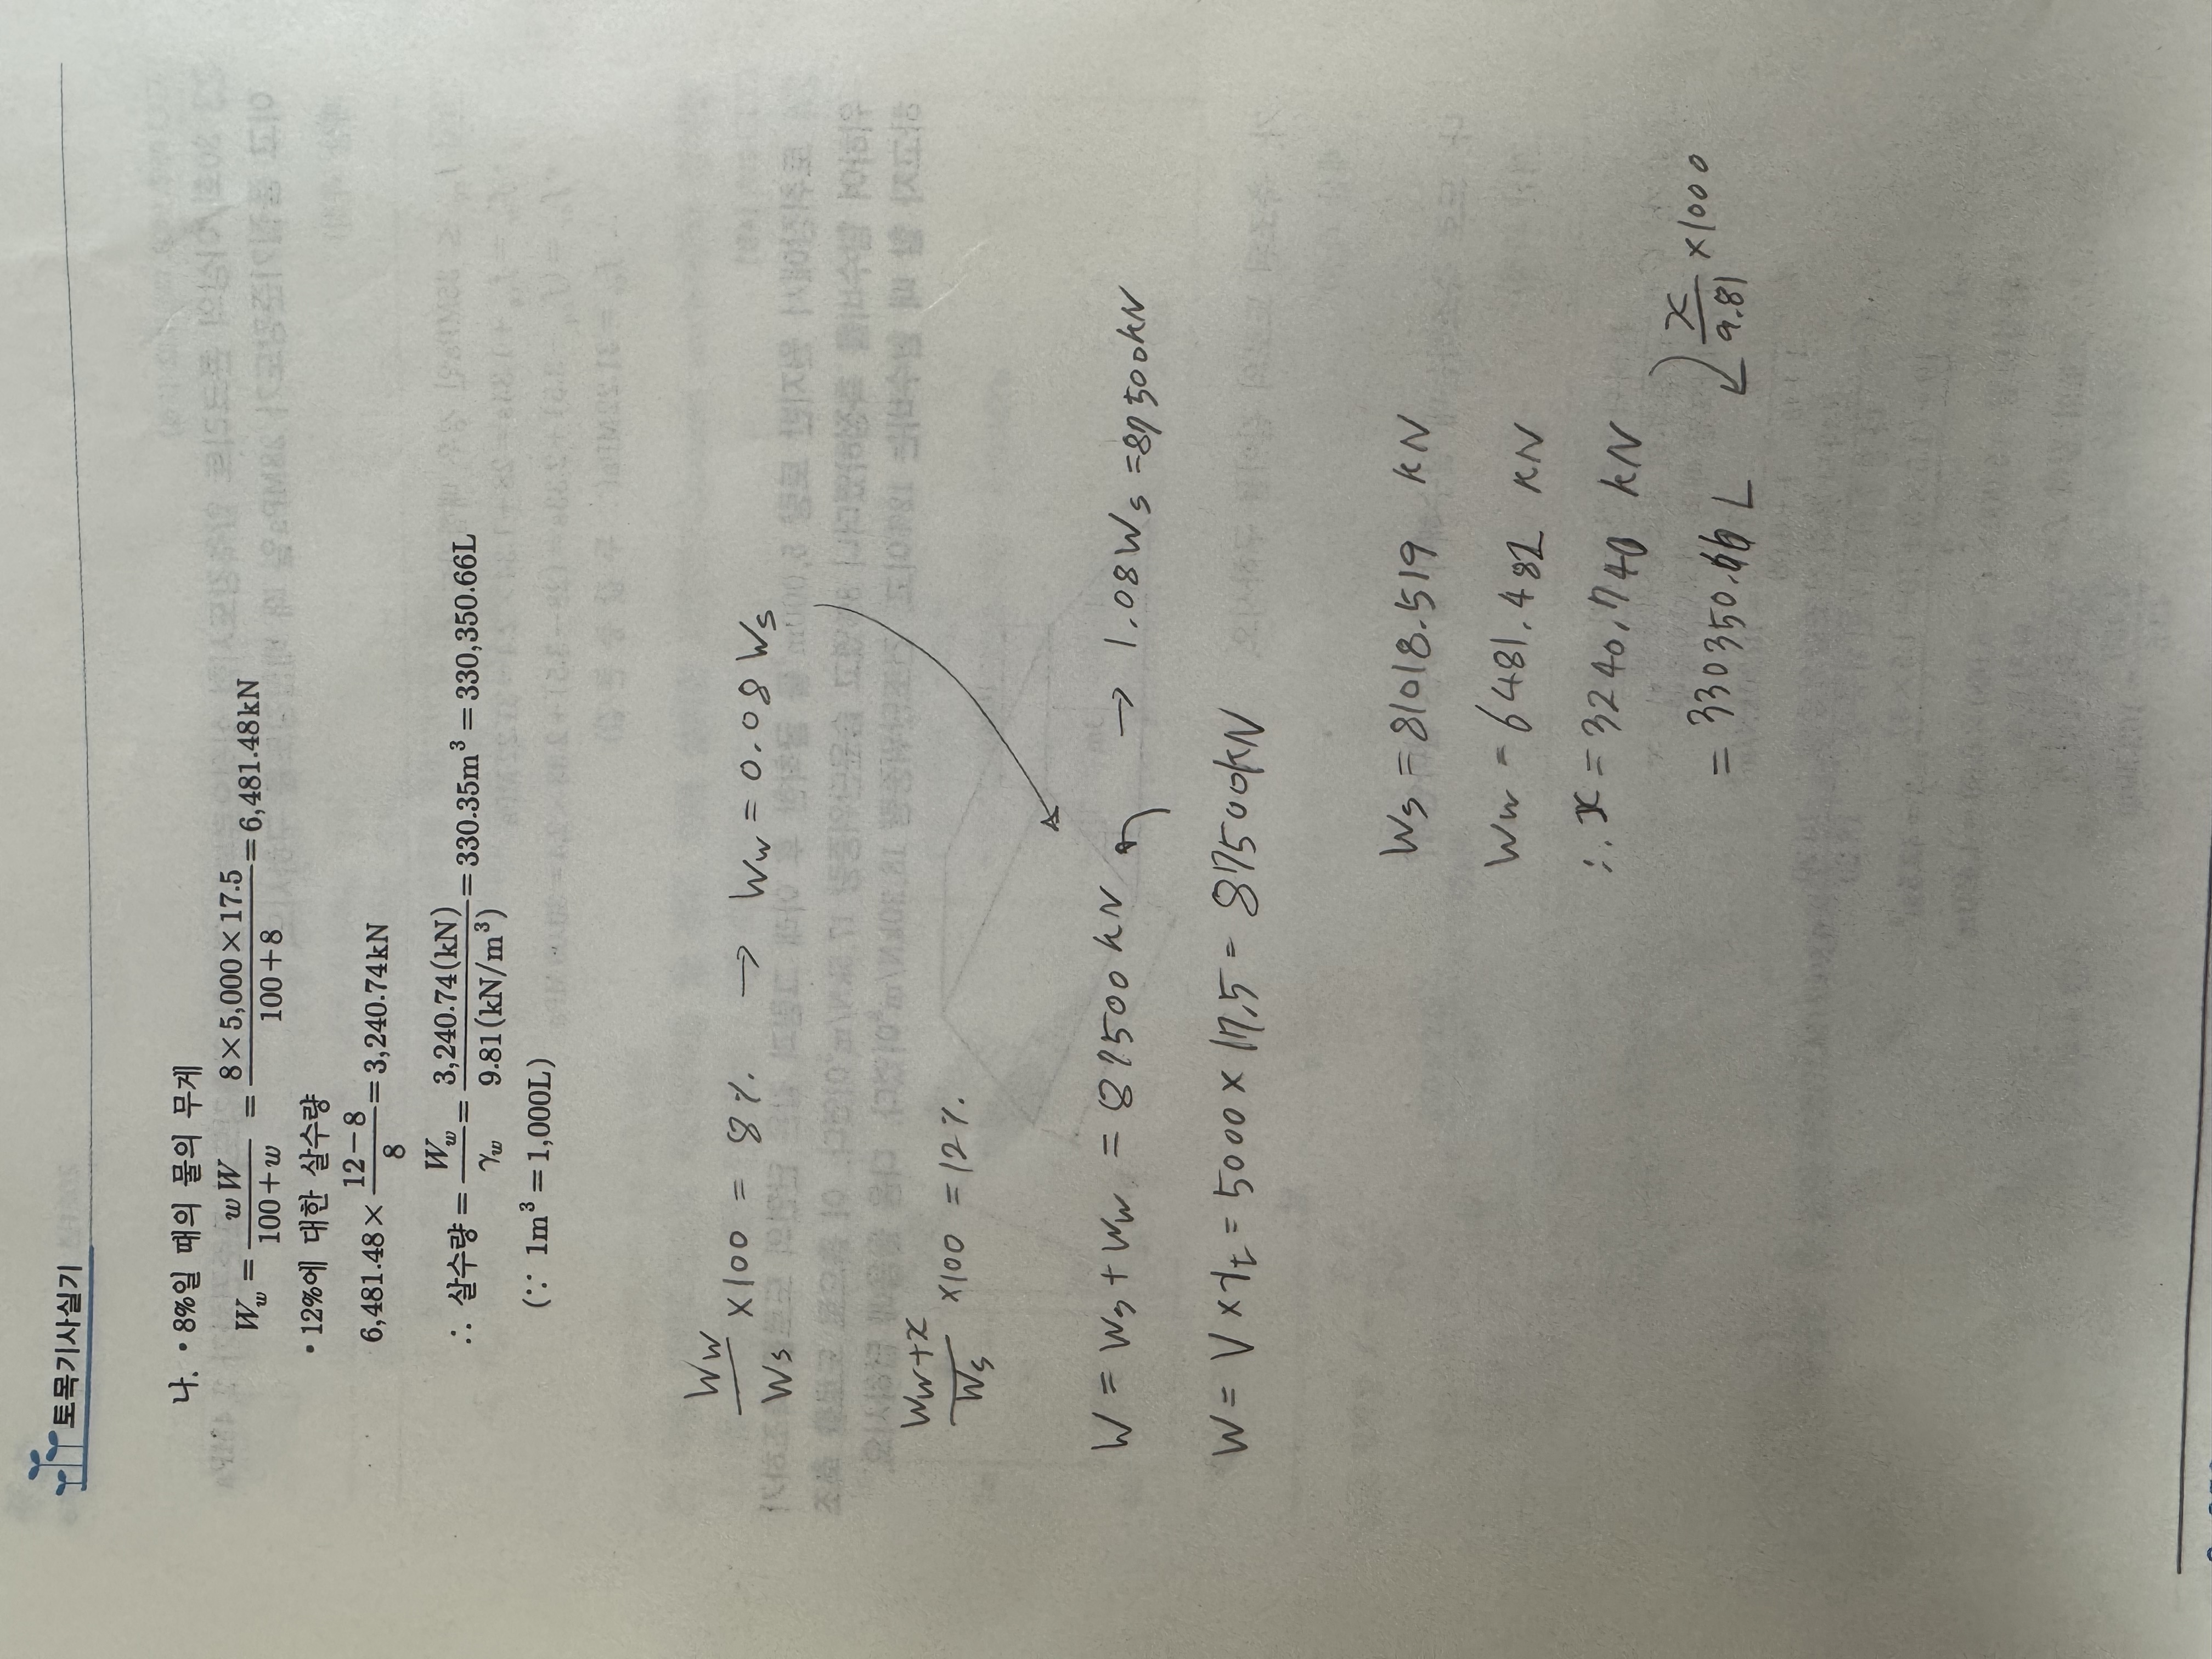 토목기사실기
나. • 8%일 때의 물의 무게
W_w = wW/(100+w) = (8×5,000×17.5)/(100+8) = 6,481.48kN
• 12%에 대한 살수량
6,481.48× (12−8)/8 = 3,240.74kN
∴ 살수량 = W_w/γ_w = 3,240.74(kN)/9.81(kN/m³) = 330.35m³ = 330,350.66L
(∵ 1m³ = 1,000L)
Ww/Ws ×100 = 8% → Ww = 0.08 Ws
(Ww+x)/Ws ×100 = 12%
W = Ws + Ww = 87500 kN → 1.08 Ws = 87500kN
W = V × γt = 5000 × 17.5 = 87500kN
Ws = 81018.519 kN
Ww = 6481.482 kN
∴ x = 3240.740 kN
x/9.81 ×1000
= 330350.66 L